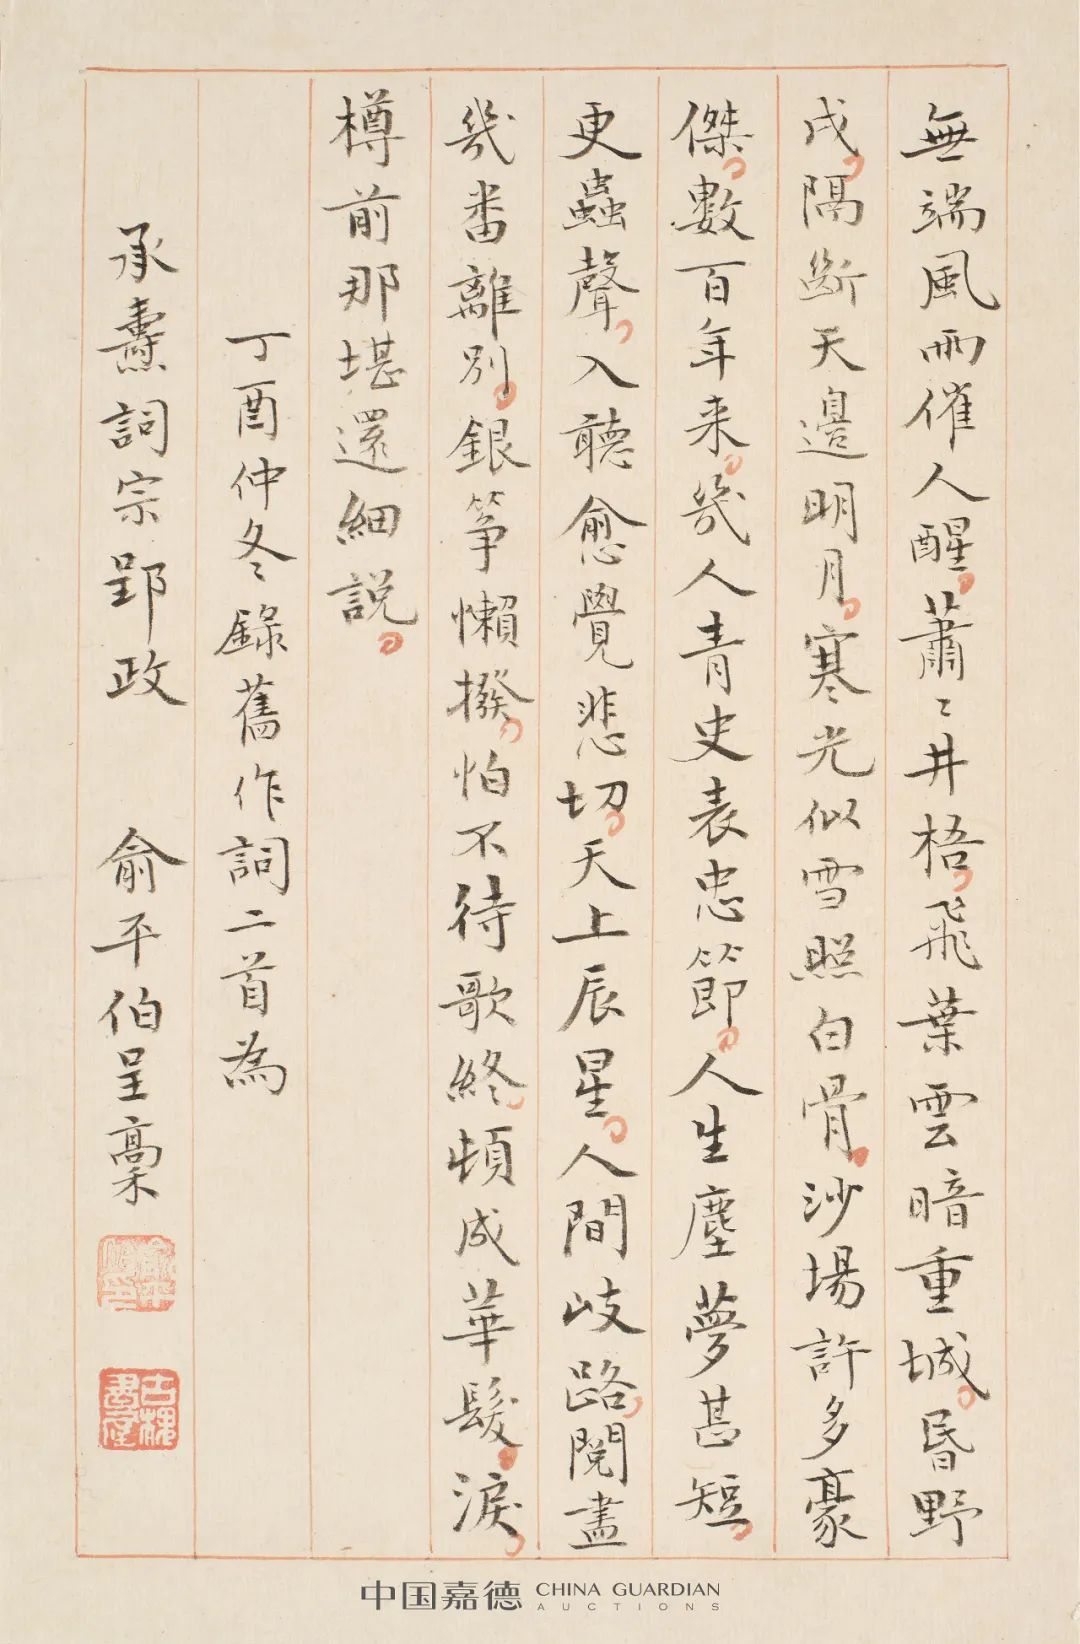 無端風雨催人醒蕭〻井梧飛葉雲暗重城昏野
戍隔斷天邊明月寒光似雪照白骨沙場許多豪
傑數百年来幾人青史表忠節人生塵夢甚短
更蟲聲入聽愈覺悲切天上辰星人間岐路閱盡
幾番離別銀箏懶撥怕不待歌終頓成華髮淚
樽前那堪還細說
丁酉仲冬錄舊作詞二首為
承燾詞宗郢政 俞平伯呈稾
古槐書屋
中国嘉德 CHINA GUARDIAN
AUCTIONS